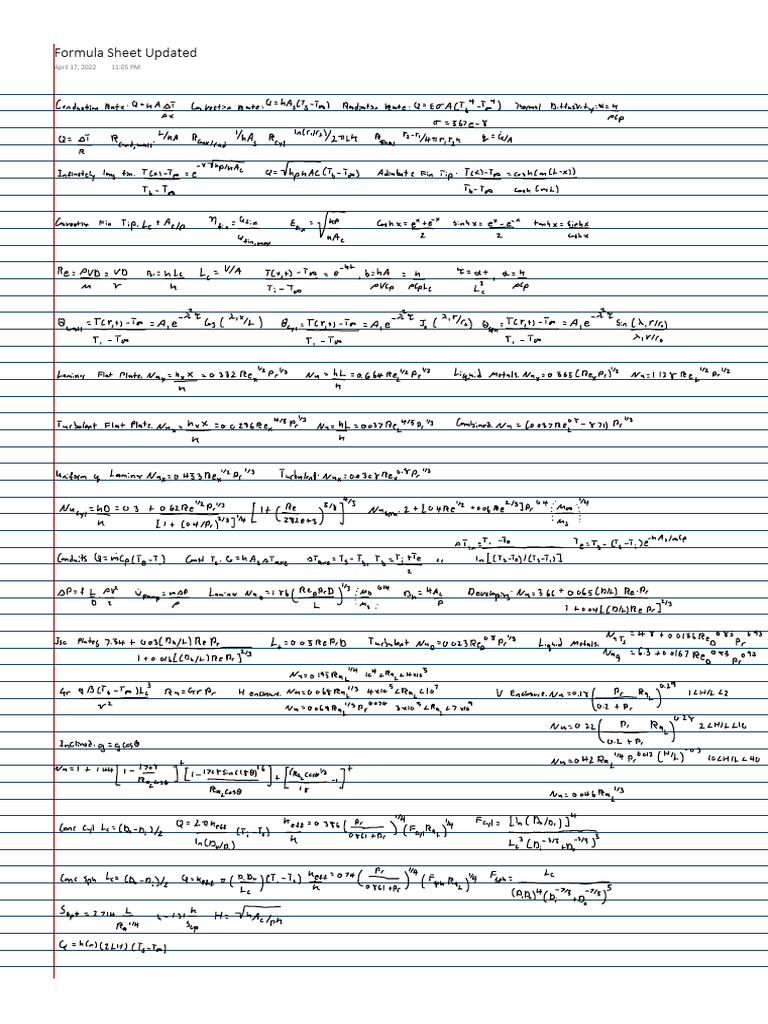 Formula Sheet Updated
April 17, 2022 11:05 PM
Conduction Rate: Q=kA ΔT/Δx Convection Rate: Q=hAs(Ts-T∞) Radiation Rate: Q=εσA(Ts⁴-T∞⁴) Thermal Diffusivity: α=k/ρcp
σ=5.67e-8
Q=ΔT/R Rcond,wall=L/kA Rconv/rad 1/hAs Rcyl ln(r2/r1)/2πLk Rsph r2-r1/4πr1r2k q=Q/A
Infinitely long fin: T(x)-T∞/Tb-T∞=e^-x√hp/kAc Q=√hpkAc(Tb-T∞) Adiabatic Fin Tip: T(x)-T∞/Tb-T∞=cosh(m(L-x))/cosh(mL)
Convective Fin Tip: Lc + Ac/p ηfin=Qfin/Qfin,max Efin=√kp/hAc coshx=e^x+e^-x/2 sinhx=e^x-e^-x/2 tanhx=sinhx/coshx
Re=ρVD/μ=VD/ν Bi=hLc/k Lc=V/A T(x,t)-T∞/Ti-T∞=e^-bt, b=hA/ρVCp=h/ρCpLc τ=αt/Lc², α=k/ρcp
θwall=T(x,t)-T∞/Ti-T∞=A1e^-λ²τ Cos(λ1x/L) θcyl=T(r,t)-T∞/Ti-T∞=A1e^-λ²τ J0(λ1r/r0) θsph=T(r,t)-T∞/Ti-T∞=A1e^-λ²τ Sin(λ1r/r0)/λ1r/r0
Laminar Flat Plate: Nux=hxX/k=0.332Rex^1/2Pr^1/3 Nu=hL/k=0.664ReL^1/2Pr^1/3 Liquid Metals: Nux=0.565(RexPr)^1/2 Nu=1.13ReL^1/2Pr^1/2
Turbulent Flat Plate: Nux=hxX/k=0.0296Rex^4/5Pr^1/3 Nu=hL/k=0.037ReL^4/5Pr^1/3 Combined: Nu=(0.037ReL^0.8-871)Pr^1/3
Uniform q Laminar Nux=0.453Rex^1/2Pr^1/3 Turbulent: Nux=0.0308Rex^0.8Pr^1/3
Nucyl=hD/k=0.3+0.62Re^1/2Pr^1/3/[1+(0.4/Pr)^2/3]^1/4[1+(Re/282e+3)^5/8]^4/5 Nusph=2+[0.4Re^1/2+0.06Re^2/3]Pr^0.4[μ∞/μs]^1/4
ΔTlm=Ti-Te/ln[(Ts-Te)/(Ts-Ti)] Te=Ts-(Ts-Ti)e^-hAs/mCp
Conduits Q=mCp(Te-Ti) Const Ts: Q=hAsΔTave ΔTave=Ts-Tb, Tb=Ti+Te/2 or
ΔP=f L/D ρV²/2 Wpump=mΔP/ρ Laminar NuD=1.86(ReDPrD/L)^1/3(μb/μs)^0.14 Dh=4Ac/P Developing: Nu=3.66+0.065(D/L)Re·Pr/1+0.04[(D/L)RePr]^2/3
Iso Plates 7.54+0.03(Dh/L)RePr/1+0.016[(Dh/L)RePr]^2/3 Lt=0.05RePrD Turbulent NuD=0.023ReD^0.8Pr^1/3 Liquid Metals: NuTs=4.8+0.0156ReD^0.85Pr^0.93
Nuq=6.3+0.0167ReD^0.85Pr^0.93
Nu=0.195RaL^1/4 10⁴<RaL<4x10⁵
Gr gβ(Ts-T∞)Lc³/ν² Ra=GrPr H enclosure: Nu=0.068RaL^1/3 4x10⁵<RaL<10⁷ V Enclosure: Nu=0.18(Pr/0.2+Pr RaL)^0.29 1<H/L<2
Nu=0.069RaL^1/3Pr^0.074 3x10⁵<RaL<7x10⁹
Nu=0.22(Pr/0.2+Pr RaL)^0.28 2<H/L<10
Inclined: g=gcosθ
Nu=0.42RaL^1/4Pr^0.012(H/L)^-0.3 10<H/L<40
Nu=1+1.44[1-1708/RaLcosθ]⁺[1-1708sin(1.8θ)^1.6/RaLcosθ]+[(RaLcosθ)^1/3/18-1]⁺
Nu=0.046RaL^1/3
Conc Cyl Lc=(Do-Di)/2 Q=2πkeff/ln(Do/Di)(Ti-To) keff/k=0.386(Pr/0.861+Pr)^1/4(FcylRaL)^1/4 Fcyl=[ln(Do/Di)]⁴/Lc³(Di^-3/5+Do^-3/5)⁵
Conc Sph Lc=(Do-Di)/2 Q=keffπ(DiDo/Lc)(Ti-To) keff/k=0.74(Pr/0.861+Pr)^1/4(FsphRaL)^1/4 Fsph=Lc/(DiDo)⁴(Di^-7/5+Do^-7/5)⁵
Sopt=2.714 L/Ra^1/4 h=1.31 k/Sop H=√hAc/pk
Q=h(n)(2LH)(Ts-T∞)